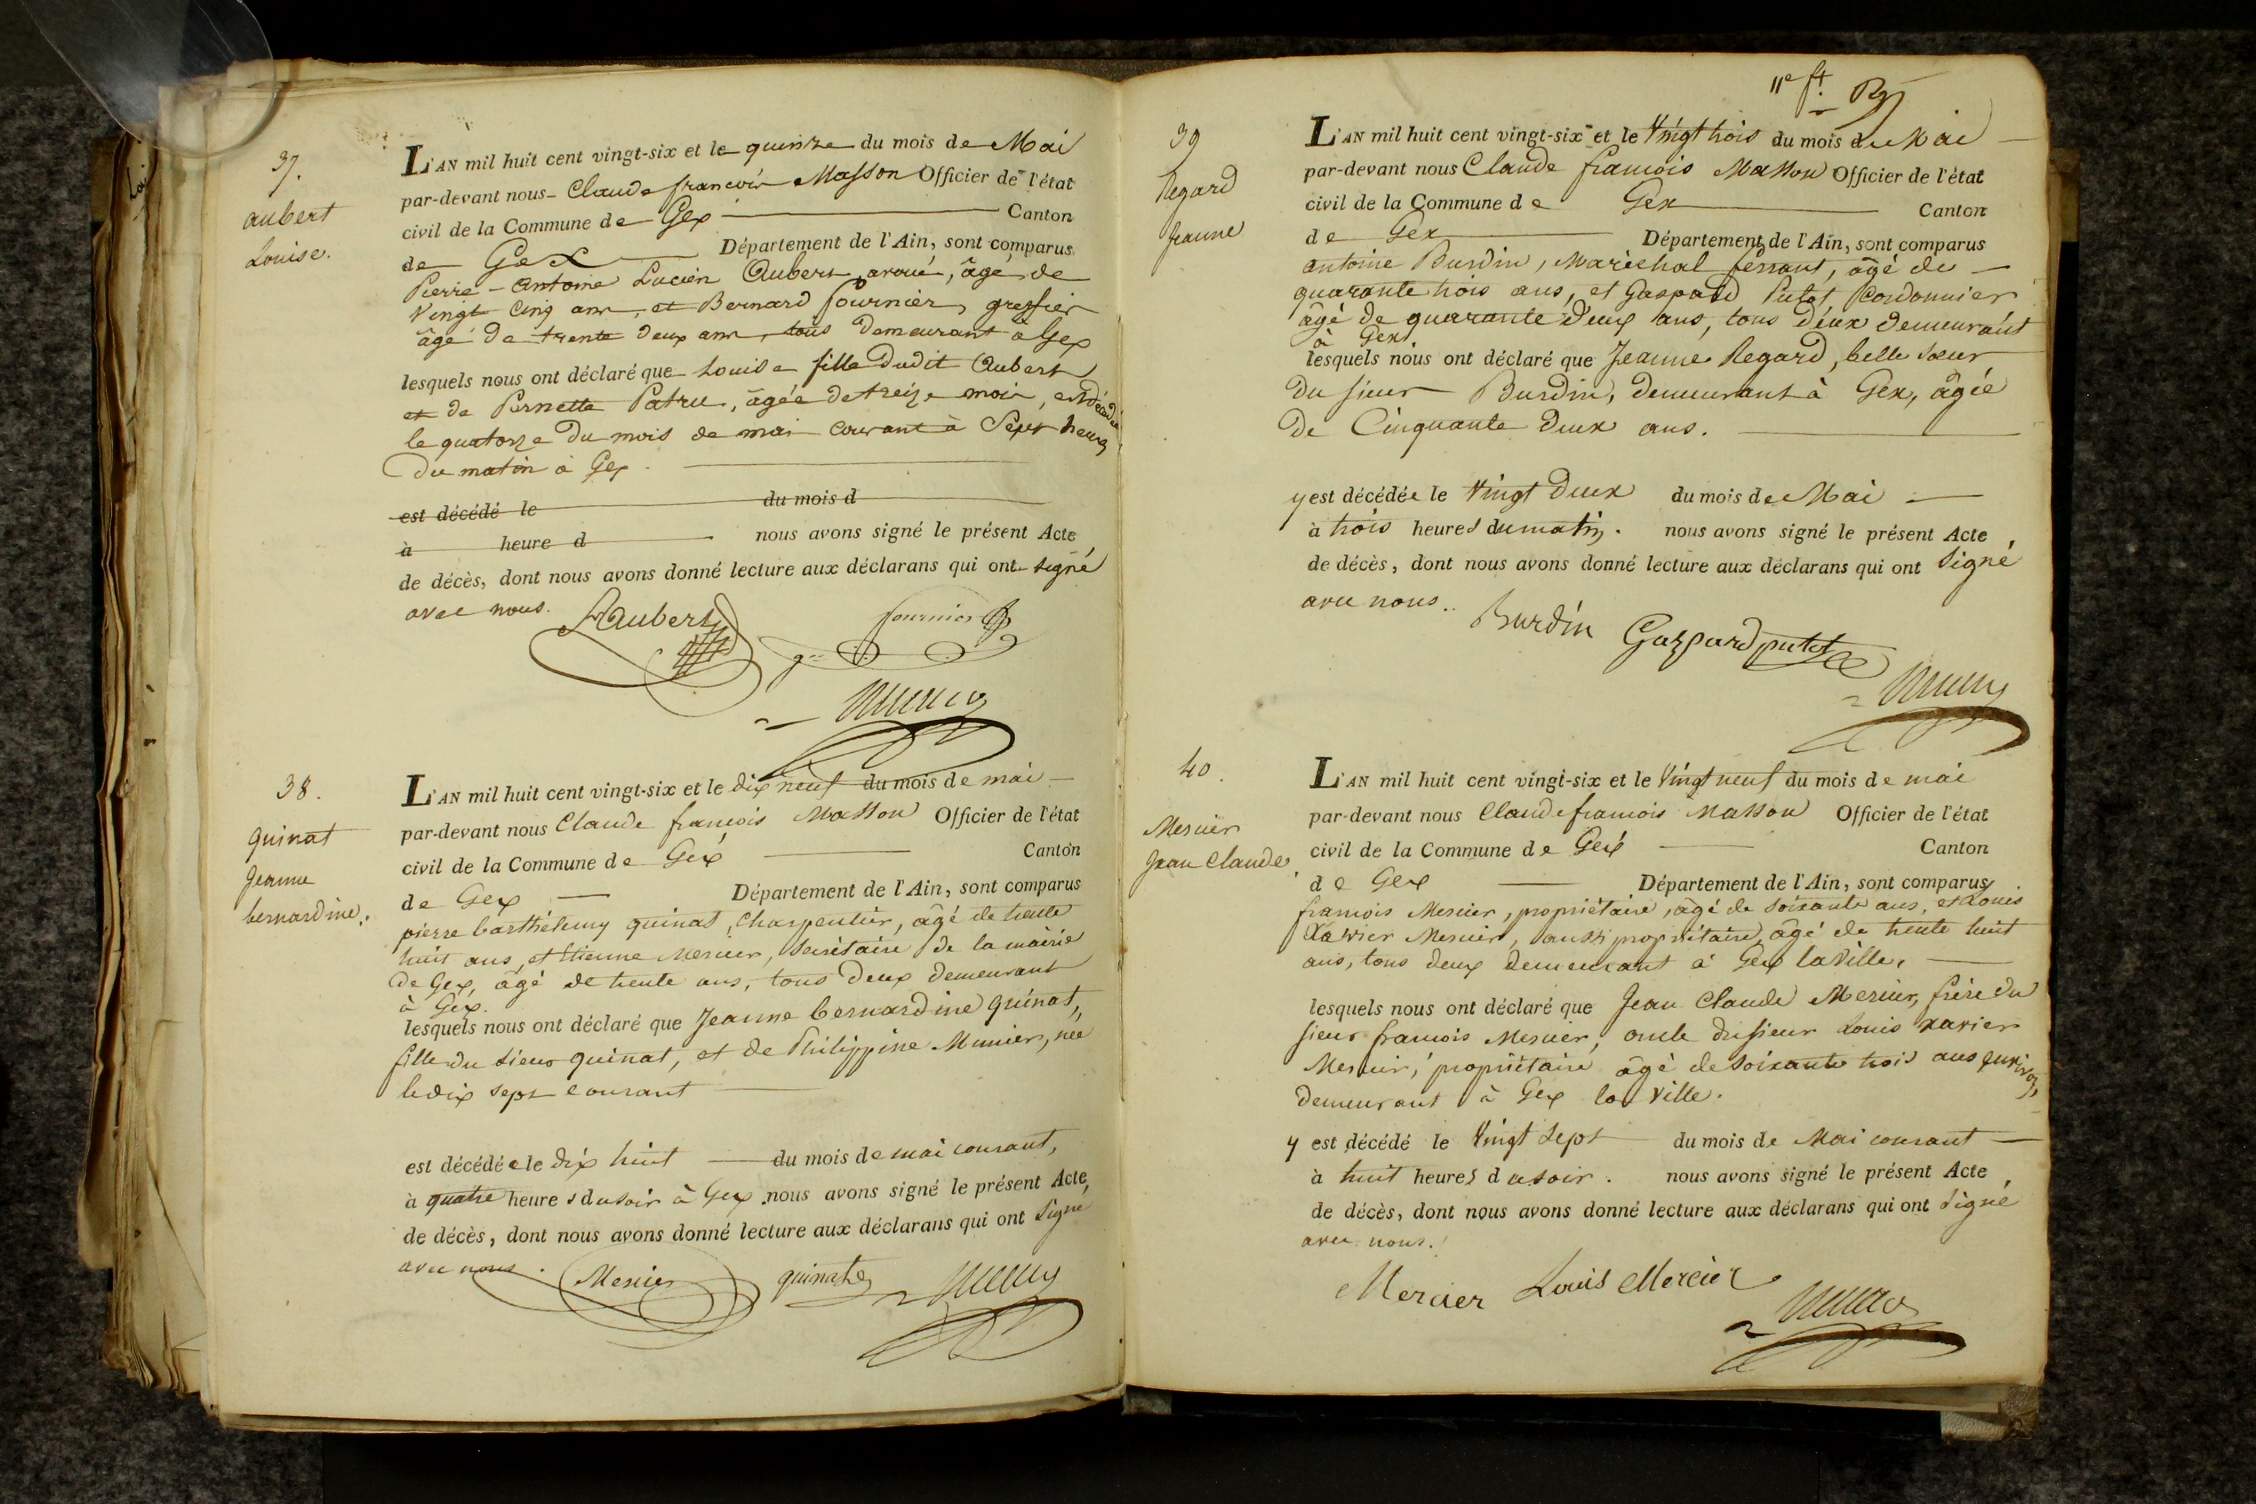 37.
aubert
Louise.
L'AN mil huit cent vingt-six et le quinze du mois de Mai
par-devant nous Claude françois Masson Officier de l'état
civil de la Commune de Gex Canton
de Gex Département de l'Ain, sont comparus
Pierre-Antoine Lucien Aubert, avoué, âgé de
vingt cinq ans, et Bernard fournier, greffier
âgé de trente deux ans, tous demeurant à Gex
lesquels nous ont déclaré que Louise fille dudit Aubert
et de Pernette Patru, âgée de treize mois, est décédée
le quatorze du mois de mai courant à Sept heures
du matin à Gex.
est décédé le du mois d
à heure d nous avons signé le présent Acte
de décès, dont nous avons donné lecture aux déclarans qui ont signé
avec nous.
Aubert
fournier
38.
quinat
Jeanne
bernardine.
L'AN mil huit cent vingt-six et le dix neuf du mois de mai
par-devant nous Claude françois Masson Officier de l'état
civil de la Commune de Gex Canton
de Gex Département de l'Ain, sont comparus
pierre barthélemy quinat, charpentier, âgé de trente
huit ans, et Etienne Mercier, secrétaire de la mairie
de Gex, âgé de trente ans, tous deux demeurant
à Gex.
lesquels nous ont déclaré que Jeanne bernardine quinat,
fille du sieur quinat, et de Philippine Munier, née
le dix sept courant
est décédée le dix huit du mois de mai courant,
à quatre heures du soir à Gex. nous avons signé le présent Acte,
de décès, dont nous avons donné lecture aux déclarans qui ont signé
avec nous.
Mercier quinat
11e ft.
39
Regard
Jeanne
L'AN mil huit cent vingt-six et le Vingt trois du mois de Mai
par-devant nous Claude françois Masson Officier de l'état
civil de la Commune de Gex Canton
de Gex Département de l'Ain, sont comparus
antoine Burdin, Maréchal ferrant, âgé de
quarante trois ans, et Gaspard Putot Cordonnier
âgé de quarante deux ans, tous deux demeurant
à Gex,
lesquels nous ont déclaré que Jeanne Regard, belle sœur
du sieur Burdin, demeurant à Gex, âgée
de Cinquante deux ans.
y est décédée le Vingt Deux du mois de Mai
à trois heures du matin. nous avons signé le présent Acte
de décès, dont nous avons donné lecture aux déclarans qui ont Signé
avec nous.
Burdin Gaspard putot
40.
Mercier
Jean Claude.
L'AN mil huit cent vingt-six et le Vingt neuf du mois de mai
par-devant nous Claude françois Masson Officier de l'état
civil de la Commune de Gex Canton
de Gex Département de l'Ain, sont comparus
françois Mercier, propriétaire, âgé de soixante ans, et Louis
Xavier Mercier, aussi propriétaire, âgé de trente huit
ans, tous deux demeurant à Gex la Ville,
lesquels nous ont déclaré que Jean Claude Mercier, frère du
sieur françois Mercier, oncle du sieur Louis xavier
Mercier, propriétaire âgé de soixante trois ans environ,
demeurant à Gex la Ville.
y est décédé le Vingt Sept du mois de Mai courant
à huit heures du soir. nous avons signé le présent Acte
de décès, dont nous avons donné lecture aux déclarans qui ont signé
avec nous.
Mercier Louis Mercier